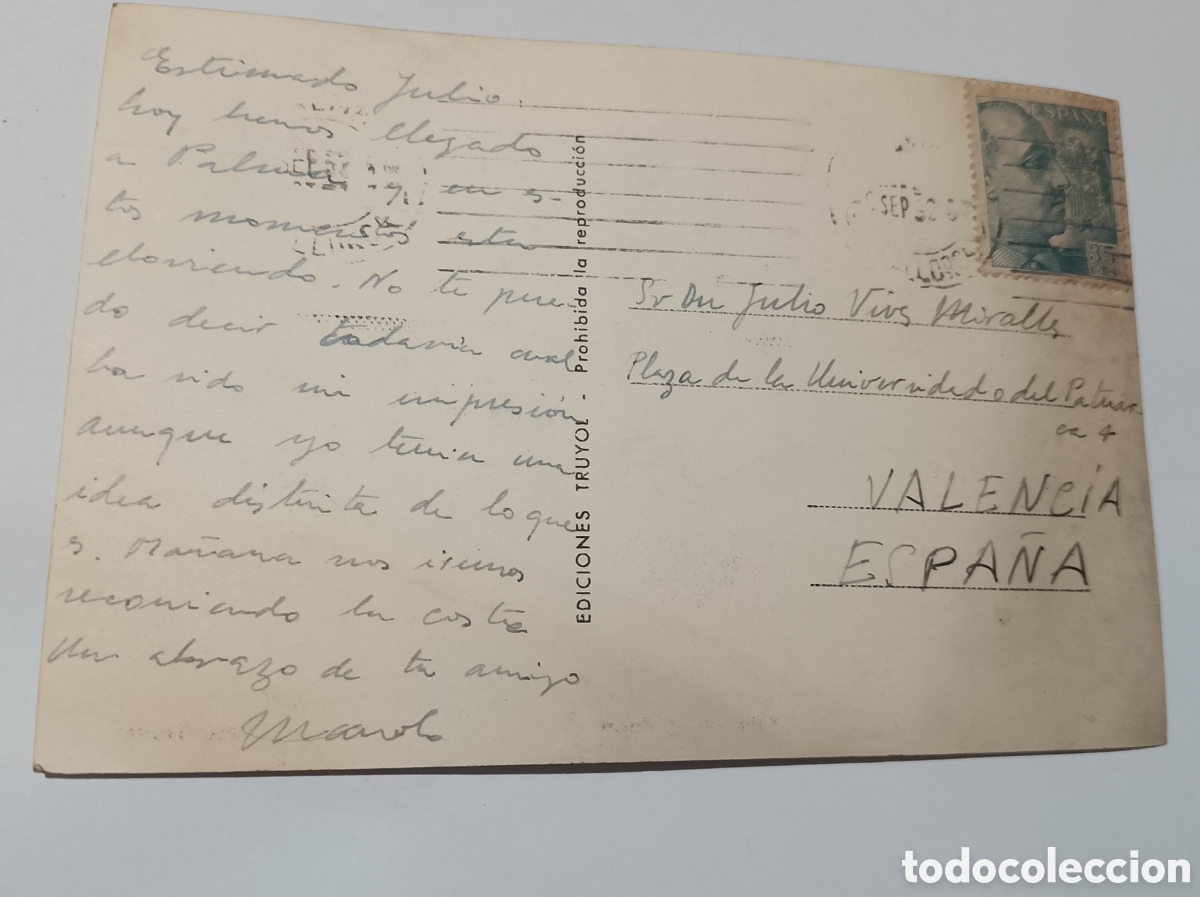 Estimado Julio.
hoy hemos llegado
a Palma y en es-
tos momentos esta
lloviendo. No te pue-
do decir todavia cual
ha sido mi impresión
aunque yo tenia una
idea distinta de lo que
es. Mañana nos iremos
recorriendo la costa
Un abrazo de tu amigo
Manolo
EDICIONES TRUYOL - Prohibida la reproducción
ESPAÑA
SEP
Sr Dn Julio Vives Miralles
Plaza de la Universidad o del Patriar-
ca 4
VALENCIA
ESPAÑA
todocoleccion